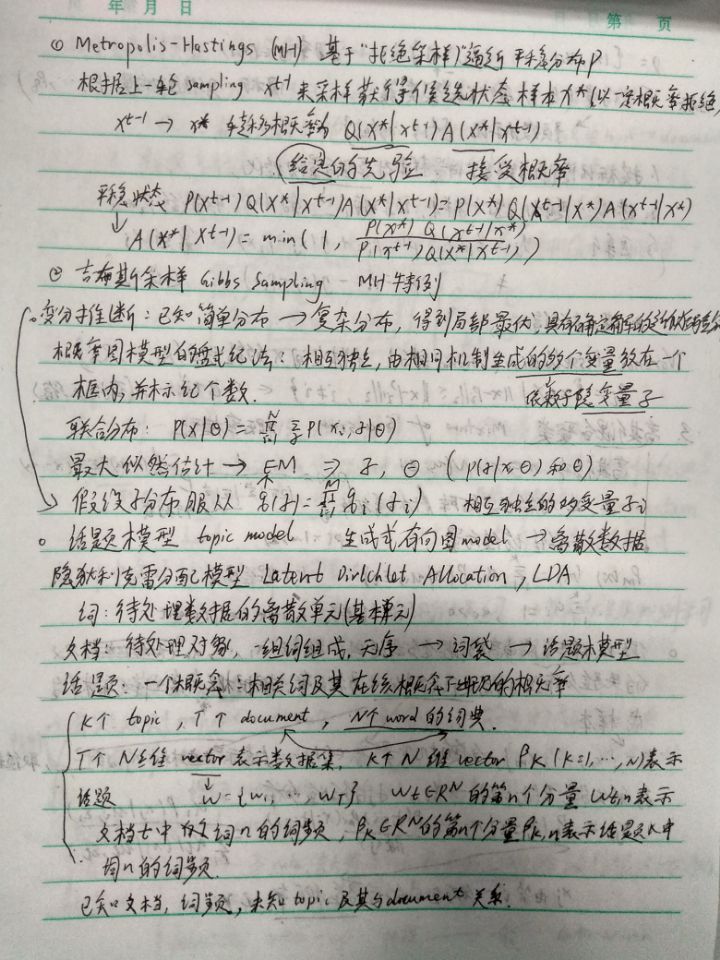 年 月 日 第 页
① Metropolis-Hastings (MH) 基于"拒绝采样"逼近平稳分布P
根据上一轮 sampling x^{t-1} 来采样获得候选状态样本 x*(以一定概率拒绝)
x^{t-1} → x* 转移概率为 Q(x*|x^{t-1}) A(x*|x^{t-1})
给定的先验 接受概率
平稳状态 P(x^{t-1}) Q(x*|x^{t-1}) A(x*|x^{t-1}) = P(x*) Q(x^{t-1}|x*) A(x^{t-1}|x*)
↓ A(x*|x^{t-1}) = min(1, P(x*) Q(x^{t-1}|x*) / P(x^{t-1}) Q(x*|x^{t-1}))
② 吉布斯采样 Gibbs Sampling MH特例
。变分推断:已知简单分布 → 复杂分布,得到局部最优,具有确定解的近似后验分
概率图模型的盘式记法:相互独立,由相同机制生成的多个变量放在一个
框内,并标记个数. 依赖于隐变量 z
联合分布: P(x|Θ) = ∏_{i=1}^{N} Σ_z P(x_i, z|Θ)
最大似然估计 → EM ⇒ z, Θ (p(z|x,Θ) 和 Θ)
假设 z 分布服从 q(z) = ∏_{i=1}^{M} q_i(z_i) 相互独立的多变量 z_i
。话题模型 topic model 生成式有向图 model → 离散数据
隐狄利克雷分配模型 Latent Dirichlet Allocation, LDA
词:待处理数据的离散单元(基本单元)
文档:待处理对象,一组词组成,无序 → 词袋 → 话题模型
话题:一个概念:相关词及其在该概念下出现的概率
K个 topic, T个 document, N个 word 的词典.
T个 N维 vector 表示数据集, K个 N维 vector β_K (K=1,…,N)表示
话题 W={w_1,…,w_T} w_t∈R^N 的第n个分量 w_{t,n}表示
文档t中的词n的词频, β_K∈R^N的第n个分量β_{k,n}表示话题K中
词n的词频.
已知文档,词频,未知topic及其与document关系.